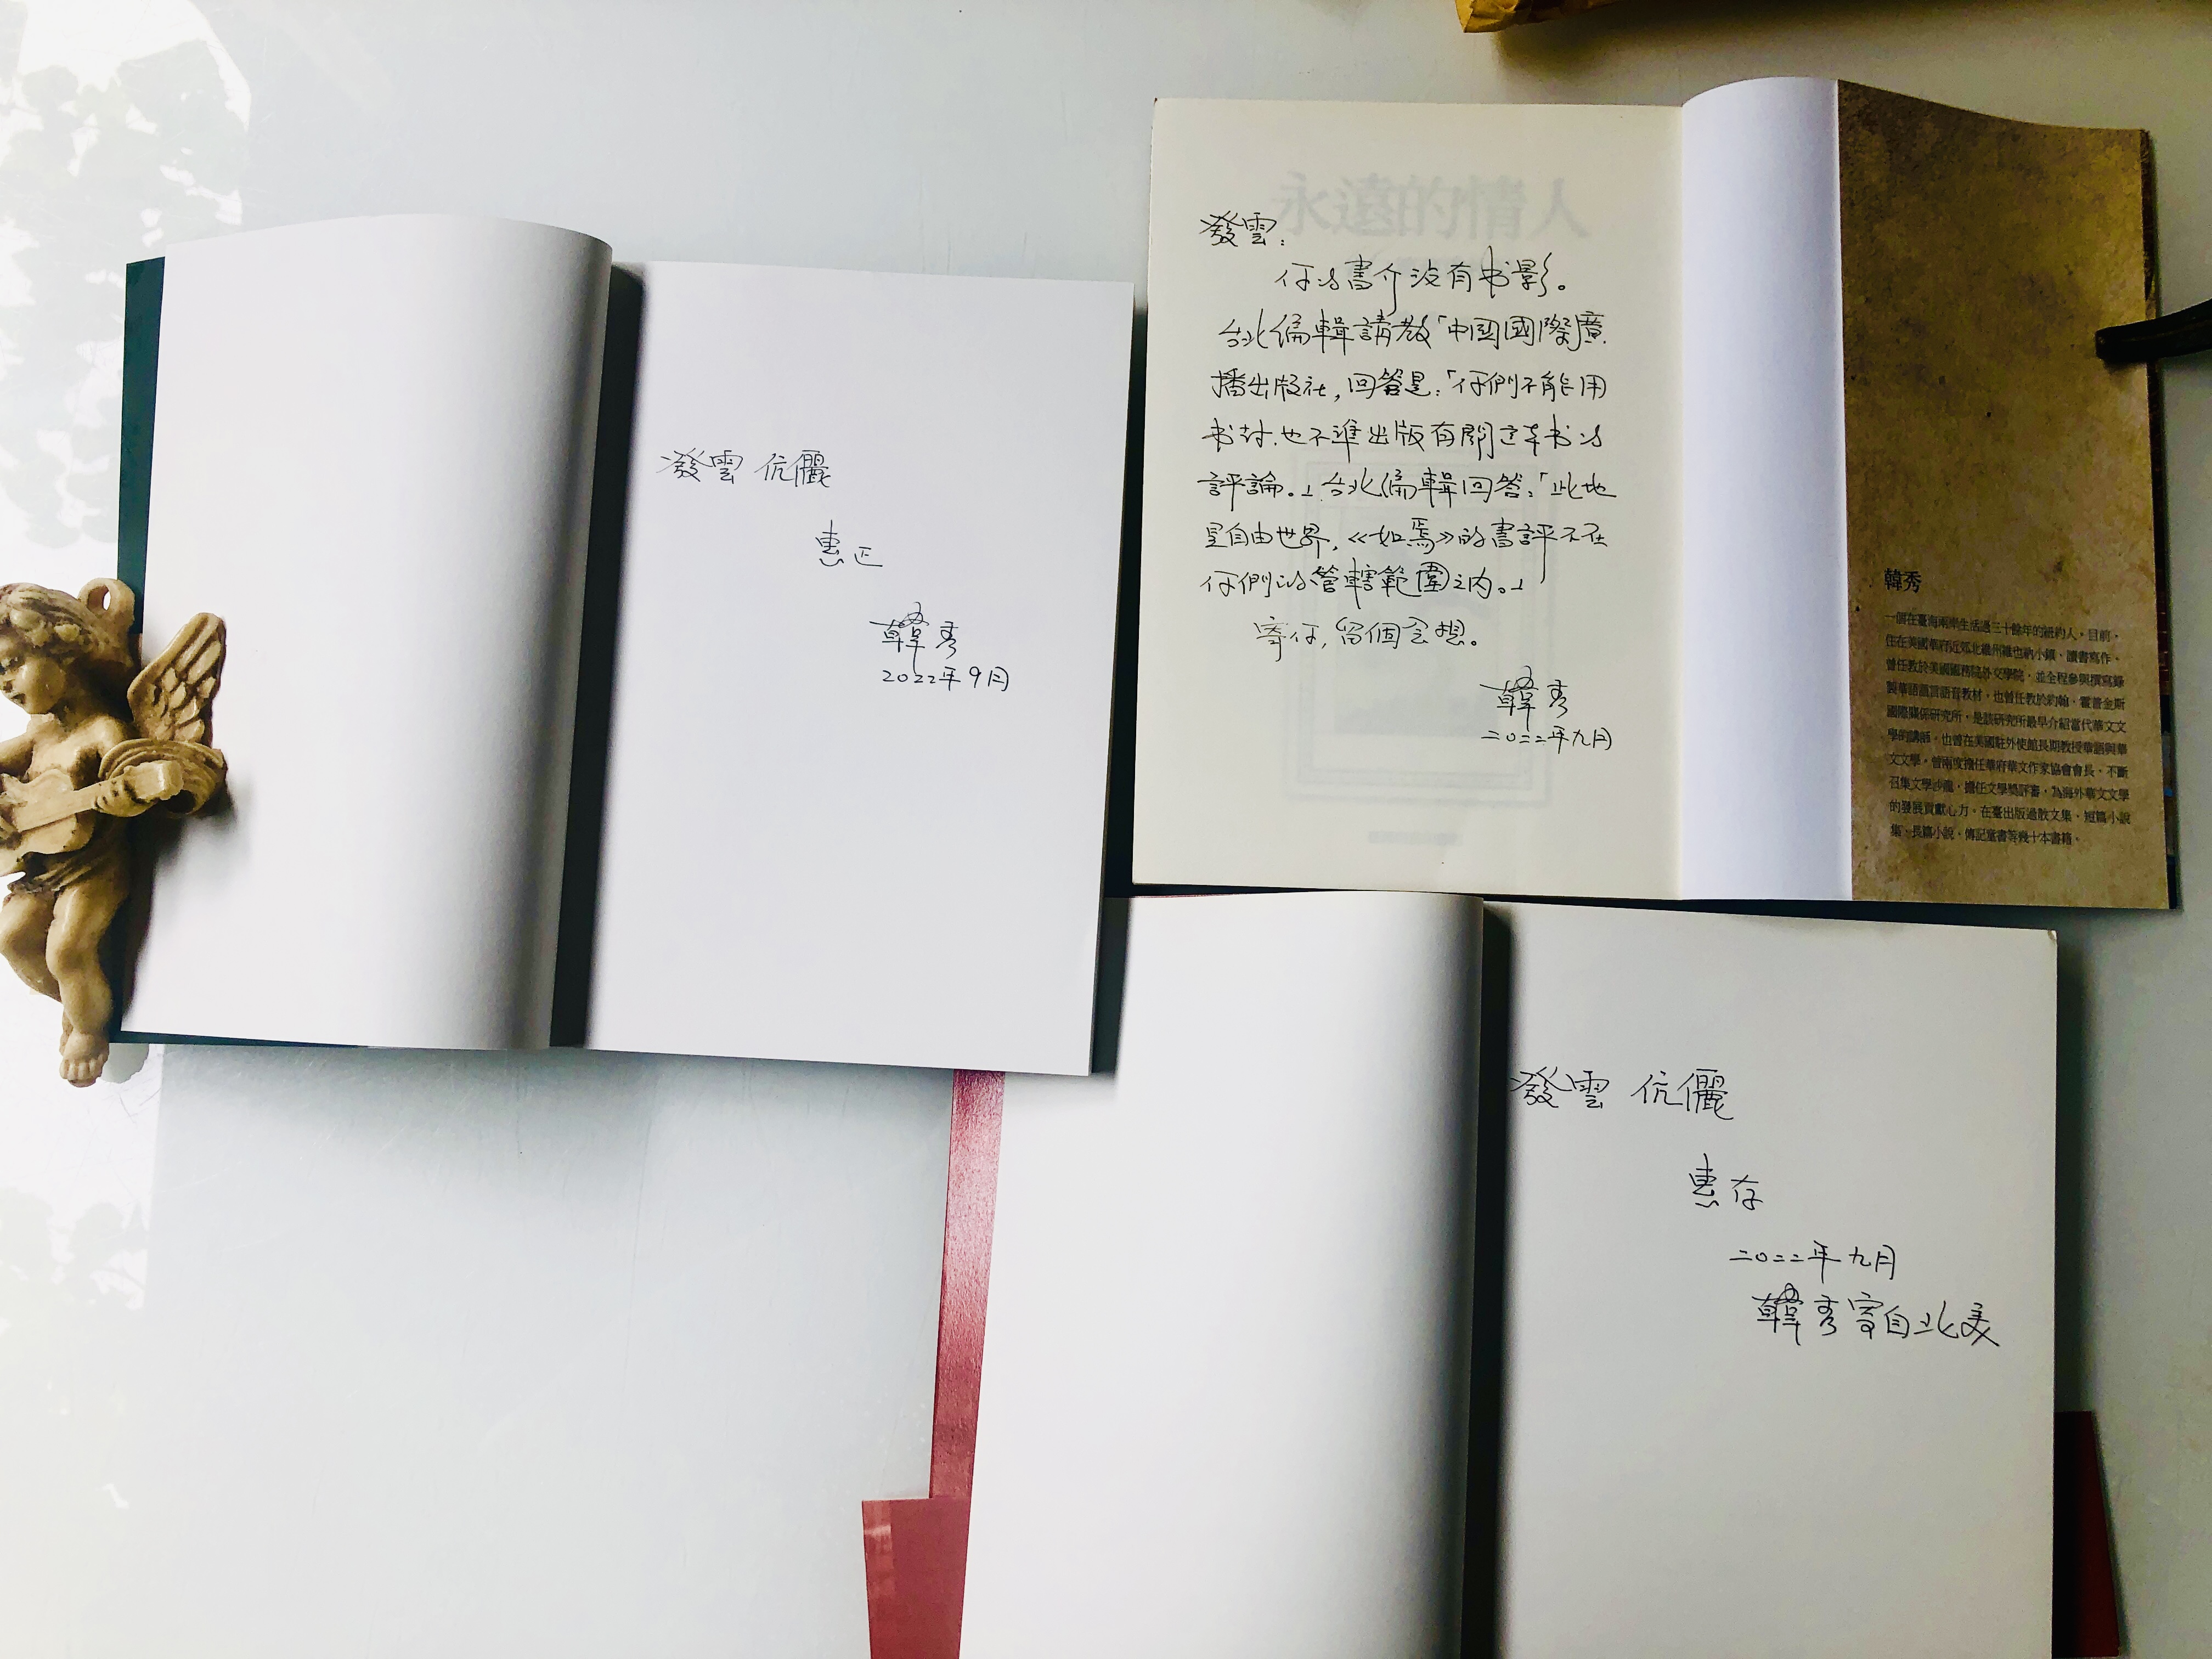 發雲 伉儷
惠正
韓秀
2022年9月
永遠的情人
發雲:
你的書介沒有书影。
台北編輯請教「中国國際廣
播出版社,回答是:「你們不能用
书封.也不準出版有関这本书的
評論。」台北編輯回答:「此地
是自由世界,《如焉》的書評不在
你們的管轄範圍之内。」
寄你,留個念想。
韓秀
二〇二二年九月
韓秀
一個在臺海兩岸生活過三十餘年的紐約人。目前,
住在美國華府近郊北維州維也納小鎮,讀書寫作。
曾任教於美國國務院外交學院,並全程參與撰寫錄
製華語語言語音教材,也曾任教於約翰·霍普金斯
國際關係研究所,是該研究所最早介紹當代華文文
學的講師。也曾在美國駐外使館長期教授華語與華
文文學。曾兩度擔任華府華文作家協會會長,不斷
召集文學沙龍、擔任文學獎評審,為海外華文文學
的發展貢獻心力。在臺出版過散文集、短篇小說
集、長篇小說、傳記童書等幾十本書籍。
發雲 伉儷
惠存
二〇二二年九月
韓秀寄自北美